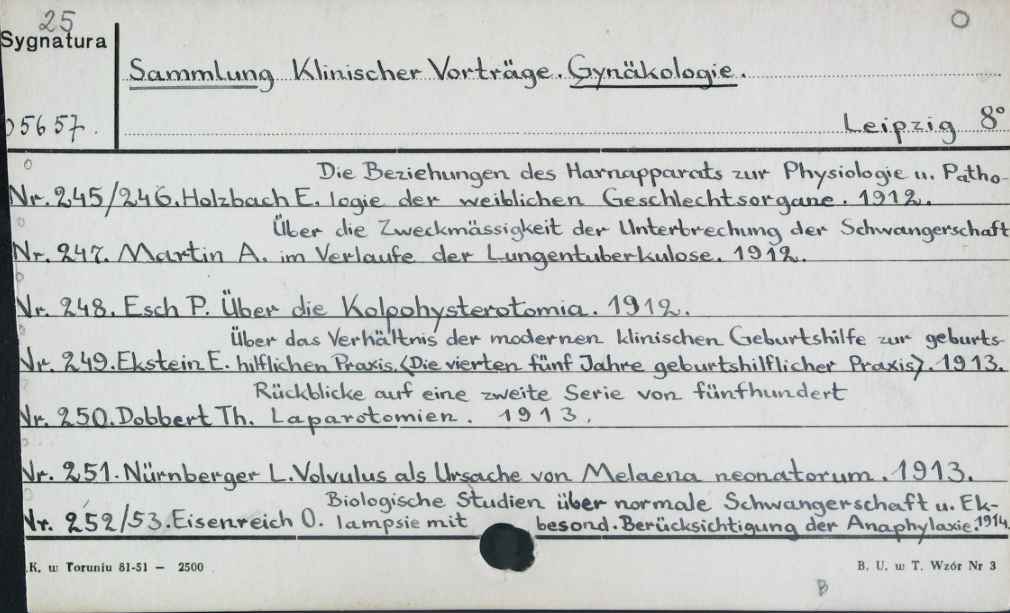 25
Sygnatura
Sammlung Klinischer Vorträge. Gynäkologie.
05657.
Leipzig 8°
Die Beziehungen des Harnapparats zur Physiologie u. Patho-
Nr. 245/246. Holzbach E. logie der weiblichen Geschlechtsorgane. 1912.
Über die Zweckmässigkeit der Unterbrechung der Schwangerschaft
Nr. 247. Martin A. im Verlaufe der Lungentuberkulose. 1912.
Nr. 248. Esch P. Über die Kolpohysterotomia. 1912.
Über das Verhältnis der modernen klinischen Geburtshilfe zur geburts-
Nr. 249. Ekstein E. hilflichen Praxis. <Die vierten fünf Jahre geburtshilflicher Praxis>. 1913.
Rückblicke auf eine zweite Serie von fünfhundert
Nr. 250. Dobbert Th. Laparotomien. 1913.
Nr. 251. Nürnberger L. Volvulus als Ursache von Melaena neonatorum. 1913.
Biologische Studien über normale Schwangerschaft u. Ek-
Nr. 252/53. Eisenreich O. lampsie mit besond. Berücksichtigung der Anaphylaxie. 1914.
.K. w Toruniu 81-51 — 2500
B. U. w T. Wzór Nr 3
B